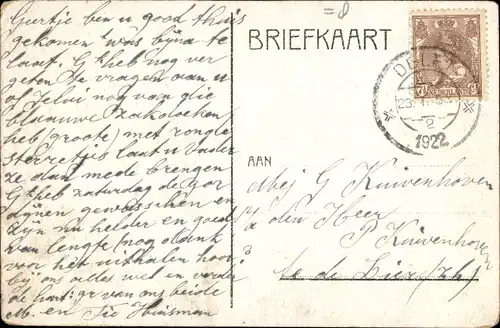 Geertje ben u goed thuis
gekomen 't was bijna te
laat. G heb nog ver
geten te vragen aan u
of Jelui nog van die
blauwe zakdoeken
heb (groote) met ronde
sterretjes laat u Vader
ze dan mede brengen
G heb zaterdag de gor
dijnen gewasschen en
zijn nu helder en goed
van lengte, nog dank
voor het uithalen hoor
bij ons alles wel en verder
de hart: gr van ons beide
M. en Huisman
=8
BRIEFKAART
DELFT
1922
7½
AAN
Mej G Kuivenhoven
p/a den Heer
P Kuivenhoven
te de Lier (zh)